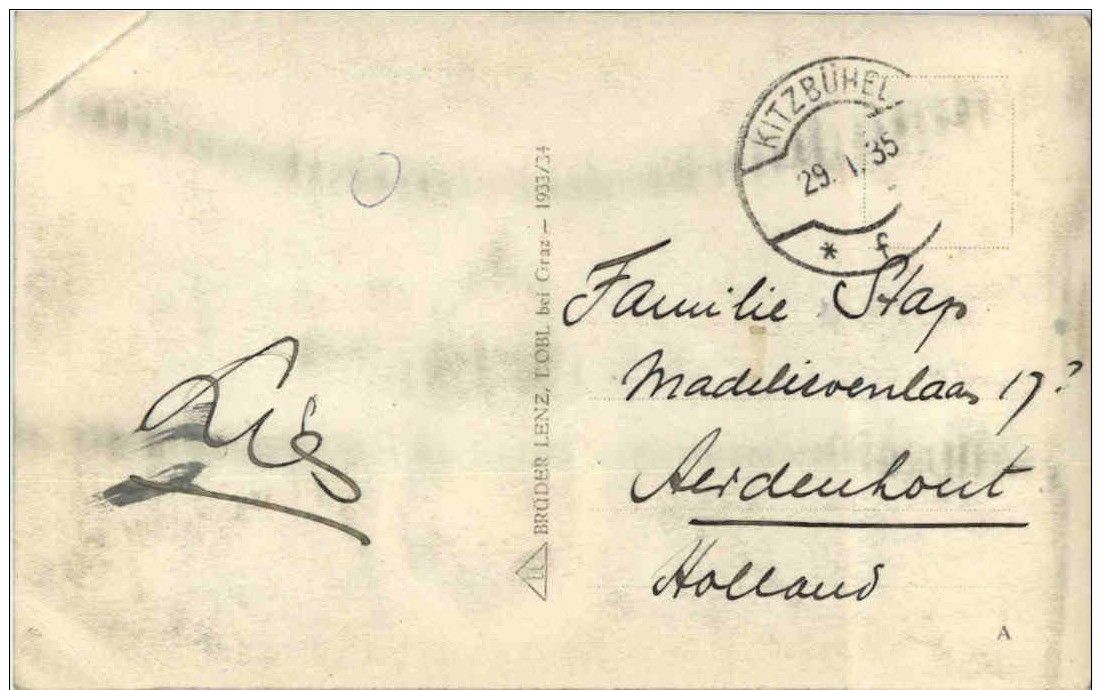 KITZBÜHEL
29. I. 35
* f
BRÜDER LENZ, LOBL bei Graz – 1933/34
Familie Stap
Madelievenlaan 17?
Aerdenhout
Holland
A